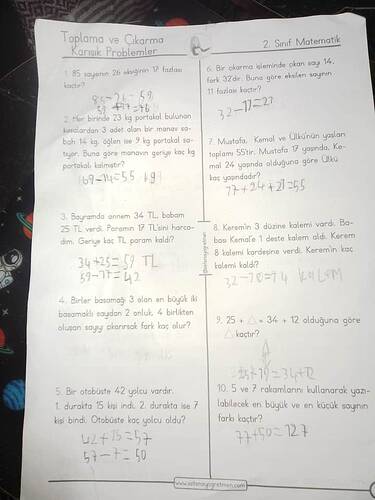 Toplama ve Çıkarma
Karışık Problemler
2. Sınıf Matematik
1. 85 sayısının 26 eksiğinin 17 fazlası
kaçtır?
2. Her birinde 23 kg portakal bulunan
kasalardan 3 adet alan bir manav sa-
bah 14 kg, öğlen ise 9 kg portakal sa-
tıyor. Buna göre manavın geriye kaç kg
portakalı kalmıştır?
69-14=55 kg
3. Bayramda annem 34 TL, babam
25 TL verdi. Paramın 17 TL'sini harca-
dım. Geriye kaç TL param kaldı?
34+25=59 TL
59-17=42
4. Birler basamağı 3 olan en büyük iki
basamaklı sayıdan 2 onluk, 4 birlikten
oluşan sayıyı çıkarırsak fark kaç olur?
5. Bir otobüste 42 yolcu vardır.
1. durakta 15 kişi indi. 2. durakta ise 7
kişi bindi. Otobüste kaç yolcu oldu?
42+15=57
57-7=50
6. Bir çıkarma işleminde çıkan sayı 14,
fark 32'dir. Buna göre eksilen sayının
11 fazlası kaçtır?
32-11=21
7. Mustafa, Kemal ve Ülkü'nün yaşları
toplamı 55'tir. Mustafa 17 yaşında, Ke-
mal 24 yaşında olduğuna göre Ülkü
kaç yaşındadır?
8. Kerem'in 3 düzine kalemi vardı. Ba-
bası Kemal'e 1 deste kalem aldı. Kerem
8 kalemi kardeşine verdi. Kerem'in kaç
kalemi kaldı?
9. 25 + △ = 34 + 12 olduğuna göre
△ kaçtır?
10. 5 ve 7 rakamlarını kullanarak yazı-
labilecek en büyük ve en küçük sayının
farkı kaçtır?
77+50=127
www.vatanayogretmen.com